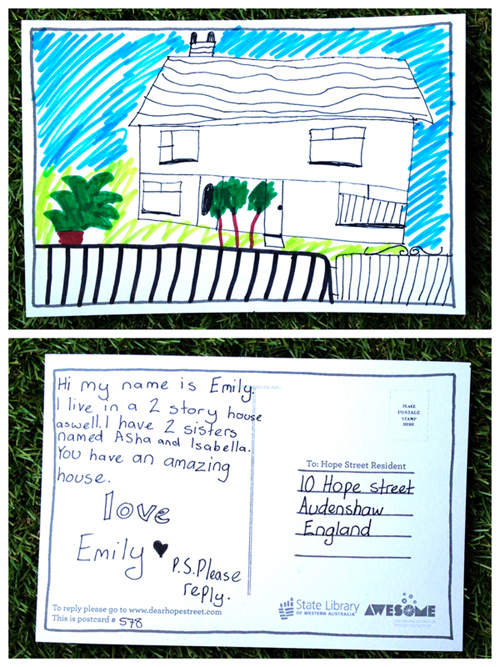 Hi my name is Emily.
I live in a 2 story house
aswell. I have 2 sisters
named Asha and Isabella.
You have an amazing
house.
love
Emily
P.S. Please
reply.
To reply please go to www.dearhopestreet.com
This is postcard # 578
PLACE
POSTAGE
STAMP
HERE
To: Hope Street Resident
10 Hope street
Audenshaw
England
State Library
OF WESTERN AUSTRALIA
AWESOME